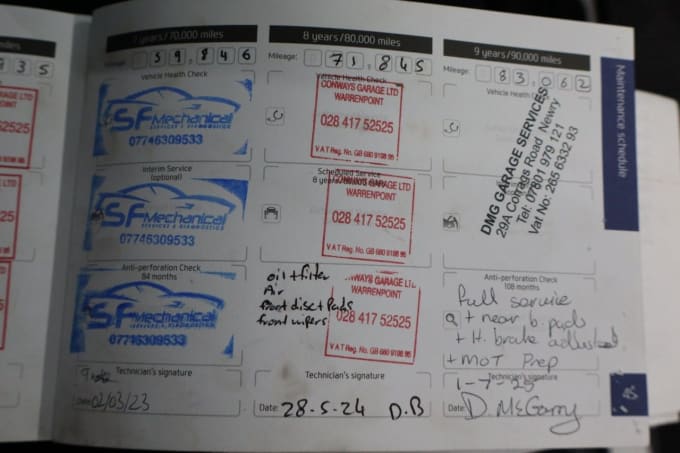 miles
935
GE LTD
OINT
52525
7 years/70,000 miles
59,846
Vehicle Health Check
SF Mechanical
SERVICES & DIAGNOSTICS
07746309533
Interim Service
(optional)
SF Mechanical
SERVICES & DIAGNOSTICS
07746309533
Anti-perforation Check
84 months
SF Mechanical
SERVICES & DIAGNOSTICS
07746309533
Technician's signature
Date: 02/03/23
8 years/80,000 miles
Mileage: 71,845
Vehicle Health Check
CONWAYS GARAGE LTD
WARRENPOINT
028 417 52525
VAT Reg. No. GB 680 9198 95
Scheduled Service
8 years
CONWAYS GARAGE LTD
WARRENPOINT
028 417 52525
VAT Reg. No. GB 680 9198 95
oil + filter
Air
front disc + Pads
front wipers
NWAYS GARAGE LT
WARRENPOINT
028 417 52525
VAT Reg. No. GB 680 9198 95
Technician's signature
Date: 28-5-24 D.B
9 years/90,000 miles
Mileage: 83,062
Vehicle Health
DMG GARAGE SERVICES
29A Corrags Road Newry
Tel: 07801 979 121
Vat No: 265 6332 93
Anti-perforation Check
108 months
full service
+ near b. pads
+ H. brake adjusted
+ MOT Prep
Technician's signature
1-7-25
Date: D. McGarry
Maintenance schedule